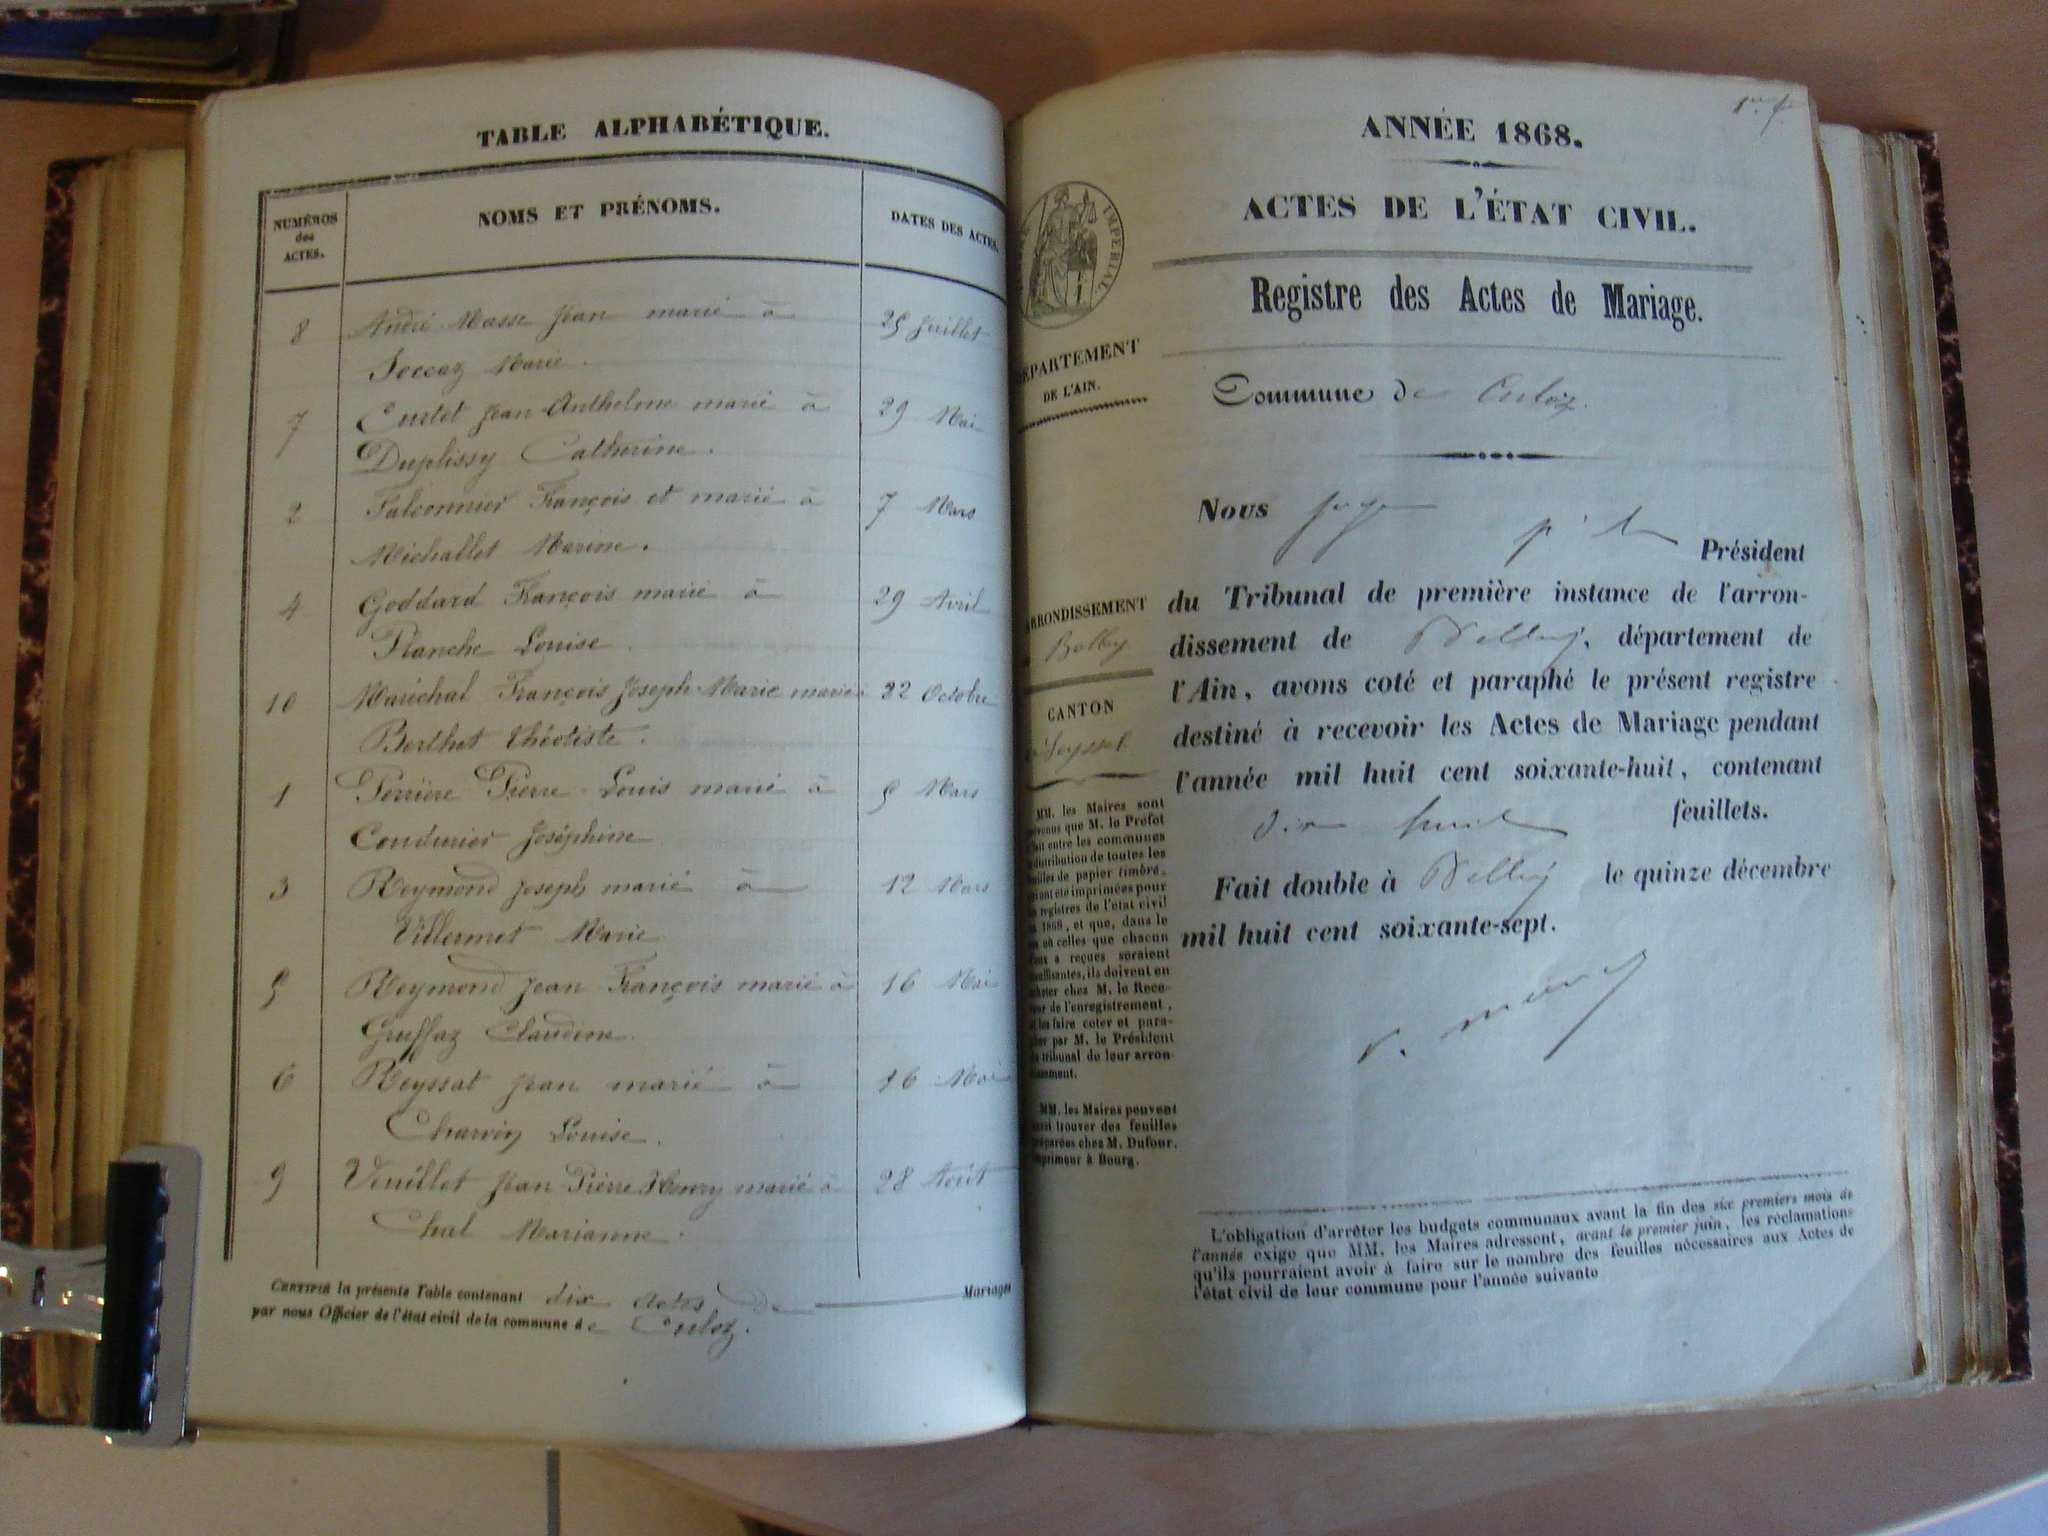 TABLE ALPHABÉTIQUE.
NUMÉROS
des
ACTES.
NOMS ET PRÉNOMS.
DATES DES ACTES.
8 André Masse Jean marié à 25 Juillet
Soccaz Marie.
7 Curtet Jean Anthelme marié à 29 Mai
Duplissy Catherine.
2 Falconnier François et marié à 7 Mars
Michallet Marine.
4 Goddard François marié à 29 Avril
Planche Louise
10 Maréchal François Joseph Marie marié à 22 Octobre
Berthet Théotiste.
1 Perrière Pierre Louis marié à 5 Mars
Condurier Joséphine
3 Reymond Joseph marié à 12 Mars
Villermet Marie
5 Reymond Jean François marié à 16 Mai
Gruffaz Claudine.
6 Reyssat Jean marié à 16 Mai
Charvin Louise.
9 Veuillet Jean Pierre Henry marié à 28 Août
Chal Marianne.
CERTIFIÉ la présente Table contenant dix actes de Mariages
par nous Officier de l'état civil de la commune de Culoz.
ANNÉE 1868.
ACTES DE L'ÉTAT CIVIL.
Registre des Actes de Mariage.
IMPERIAL
DÉPARTEMENT
DE L'AIN.
Commune de Culoz.
Nous Juge
Président
du Tribunal de première instance de l'arron-
dissement de Belley, département de
l'Ain, avons coté et paraphé le présent registre
destiné à recevoir les Actes de Mariage pendant
l'année mil huit cent soixante-huit, contenant
dix huit feuillets.
Fait double à Belley le quinze décembre
mil huit cent soixante-sept.
ARRONDISSEMENT
Belley
CANTON
Seyssel
MM. les Maires sont
prévenus que M. le Préfet
fait entre les communes
distribution de toutes les
feuilles de papier timbré
ayant été imprimées pour
registres de l'état civil
1868, et que, dans le
où celles que chacun
d'eux a reçues seraient
insuffisantes, ils doivent en
acheter chez M. le Rece-
veur de l'enregistrement,
et les faire coter et para-
pher par M. le Président
du tribunal de leur arron-
dissement.
MM. les Maires peuvent
aussi trouver des feuilles
préparées chez M. Dufour,
imprimeur à Bourg.
L'obligation d'arrêter les budgets communaux avant la fin des six premiers mois de
l'année exige que MM. les Maires adressent, avant le premier juin, les réclamations
qu'ils pourraient avoir à faire sur le nombre des feuilles nécessaires aux Actes de
l'état civil de leur commune pour l'année suivante